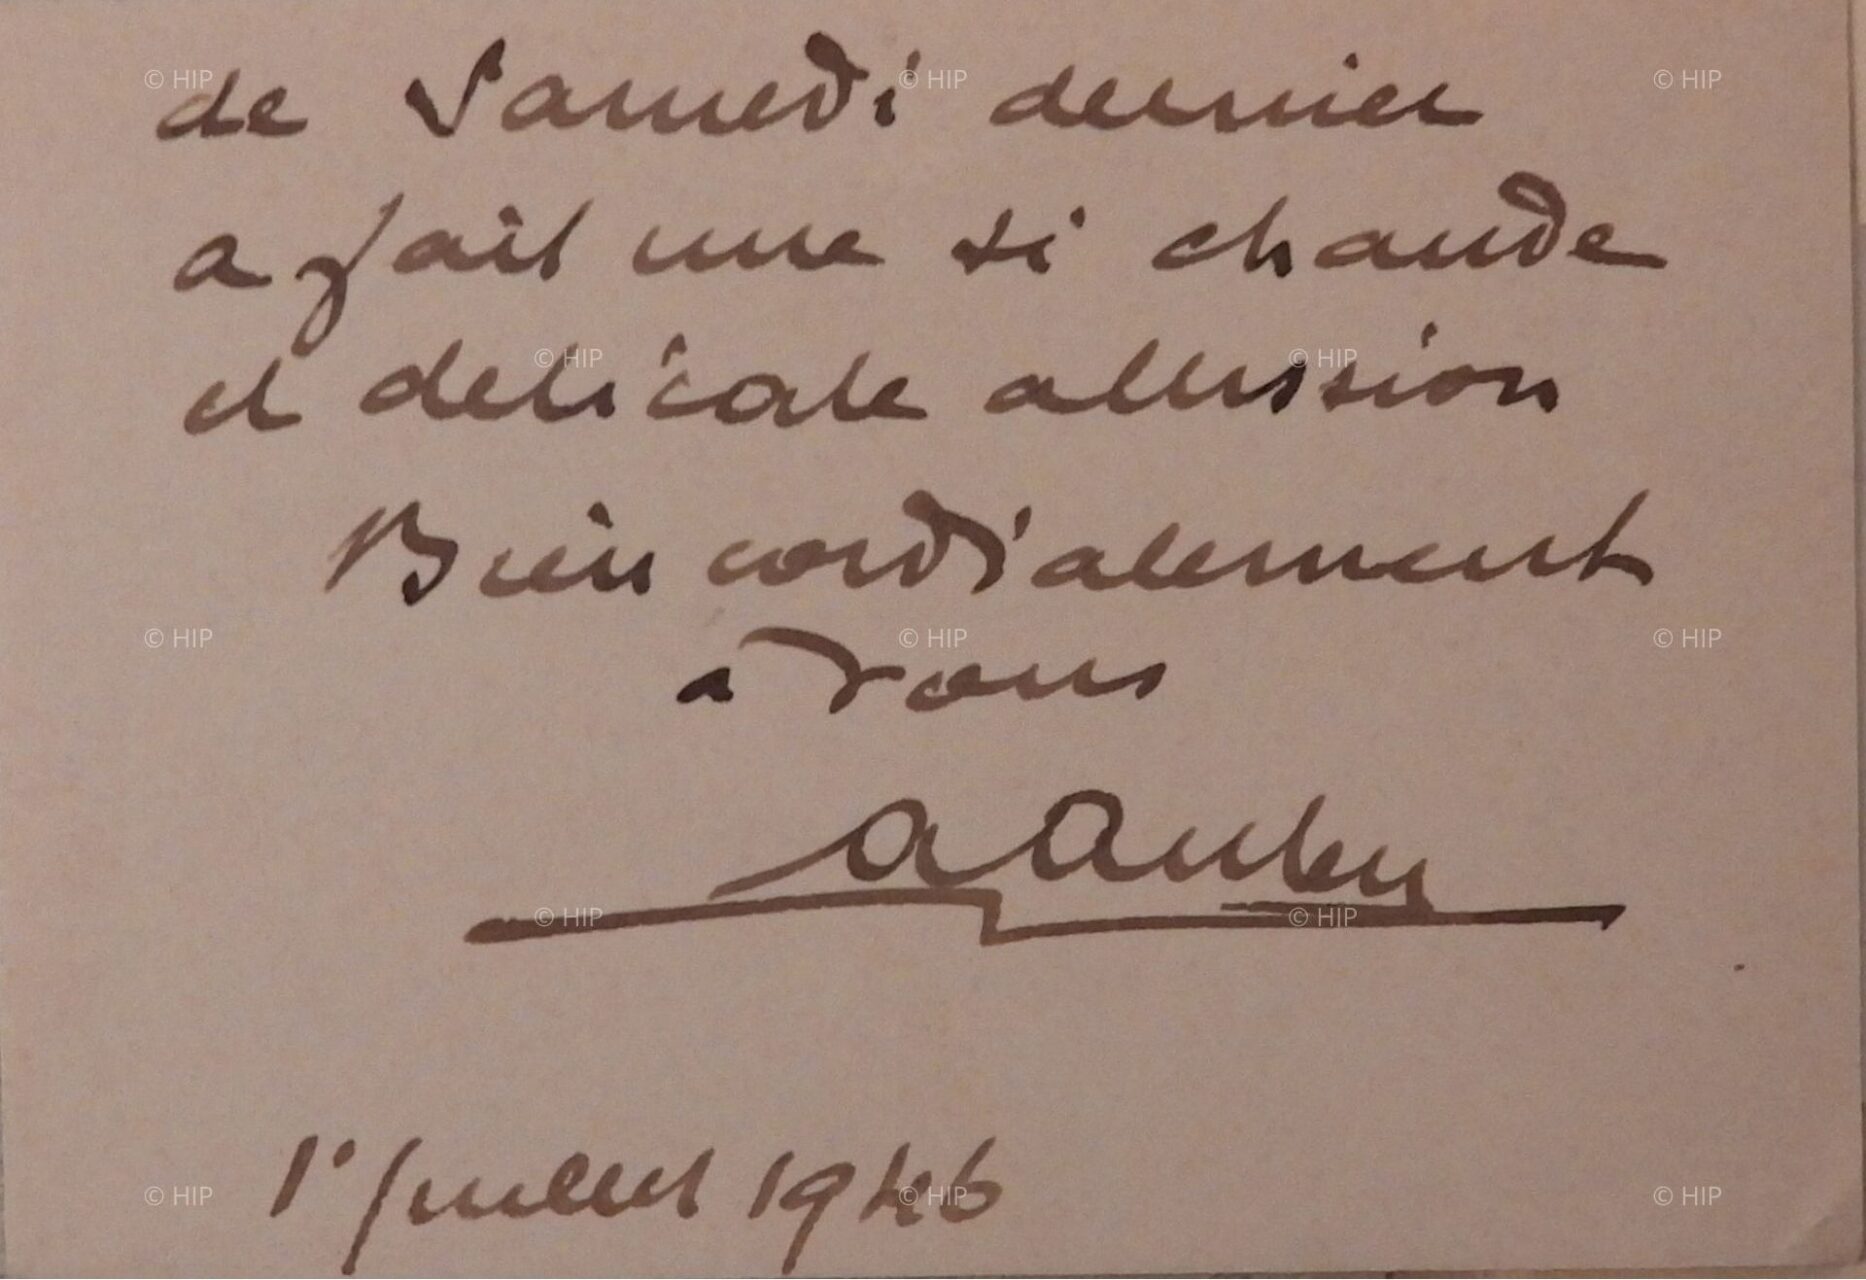 de Samedi dernier
a fait une si chaude
et delicate allusion
Bien cordialement
a vous
1° Juillet 1946
© HIP © HIP © HIP
© HIP © HIP
© HIP © HIP © HIP
© HIP © HIP
© HIP © HIP © HIP